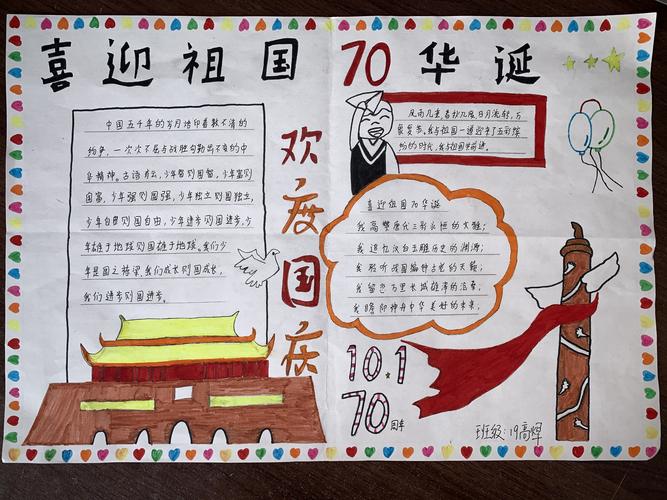 喜迎祖国70华诞
中国五千年的岁月烙印着数不清的
纷争，一次次不屈与战胜勾勒出不变的中
华精神。古语有云，少年智则国智，少年富则
国富，少年强则国强，少年独立则国独立，
少年自由则国自由，少年进步则国进步，少
年雄于地球则国雄于地球。我们少
年是国之栋梁，我们成长则国成长，
我们进步则国进步。
欢度国庆
风雨几重，春秋几度，日月流转，万
象更新，我与祖国一道迎来了五彩缤
纷的时代，我与祖国共前进。
喜迎祖国70华诞
我高擎唐代三彩永恒的火雅；
我追忆汉白玉雕历史的渊源；
我聆听战国编钟古老的天籁；
我留恋万里长城雄浑的沧桑；
我瞻仰神舟中华美好的未来；
10.1
70周年
班级：19高焊